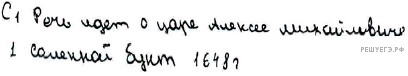 С1 Речь идет о царе Алексее Михайловиче
1 Соленной бунт 1648г
РЕШУЕГЭ.РФ